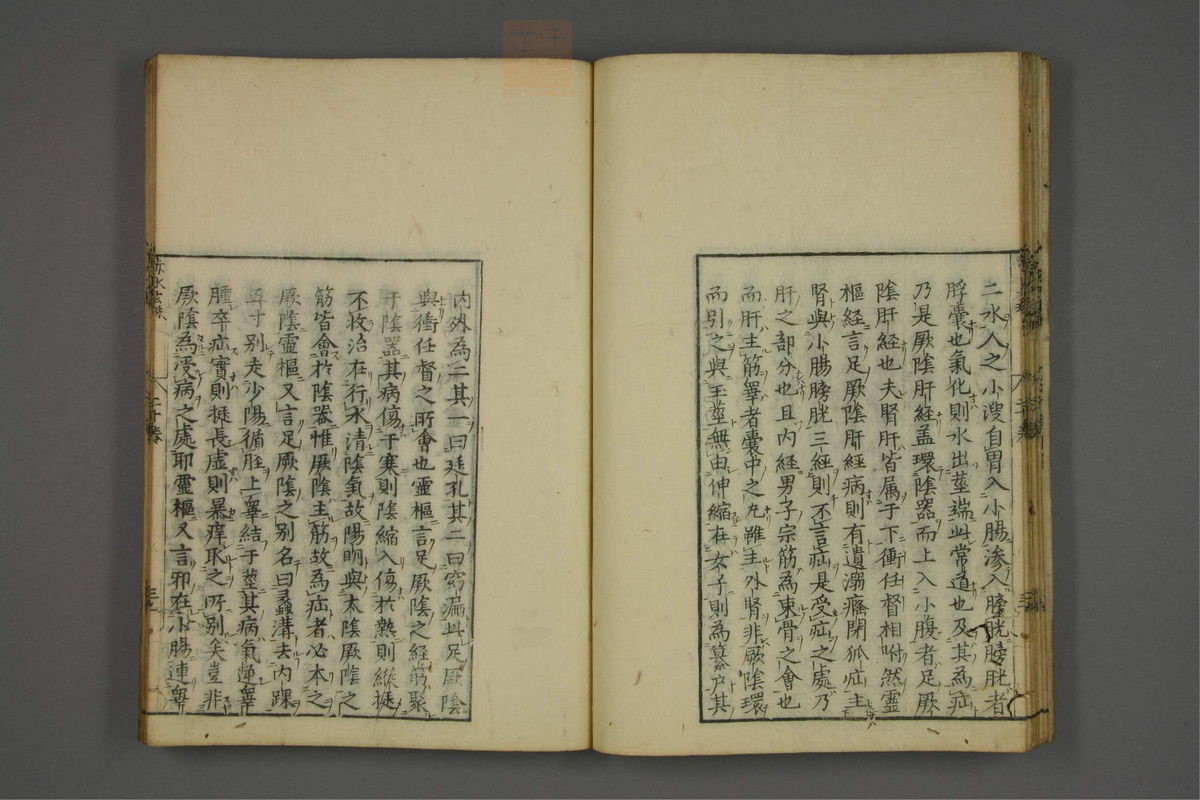 二水人之小溲自胃入小腸滲入膀胱膀胱者
脬囊也氣化則水出莖端此常道也及其為疝
乃是厥陰肝經盖環陰器而上入小腹者足厥
陰肝經也夫腎肝皆属于下衝任督相咐然靈
樞經言足厥陰肝經病則有遺溺癃閉狐疝主
腎與小腸膀胱三經則不言疝是受疝之處乃
肝之部分也且内經男子宗筋為束骨之會也
而肝主筋睾者囊中之丸雖主外腎非厥陰環
而引之與玉莖無由伸縮在女子則為纂戸其
内外為二其一曰廷孔其二曰窈漏此足厥陰
與衝任督之所會也靈樞言足厥陰之經筋聚
于陰器其病傷于寒則陰縮入傷於熱則縱挺
不收治在行水清陰氣故陽明與太陰厥陰之
筋皆會於陰器惟厥陰主筋故為疝者必本之
厥陰靈樞又言足厥陰之别名曰蠡溝去内踝
五寸别走少陽循脛上睾結于莖其病氣逆睾
腫卒疝實則挺長虚則暴痒取之所别矣豈非
厥陰為受病之處耶靈樞又言邪在小腸連睾